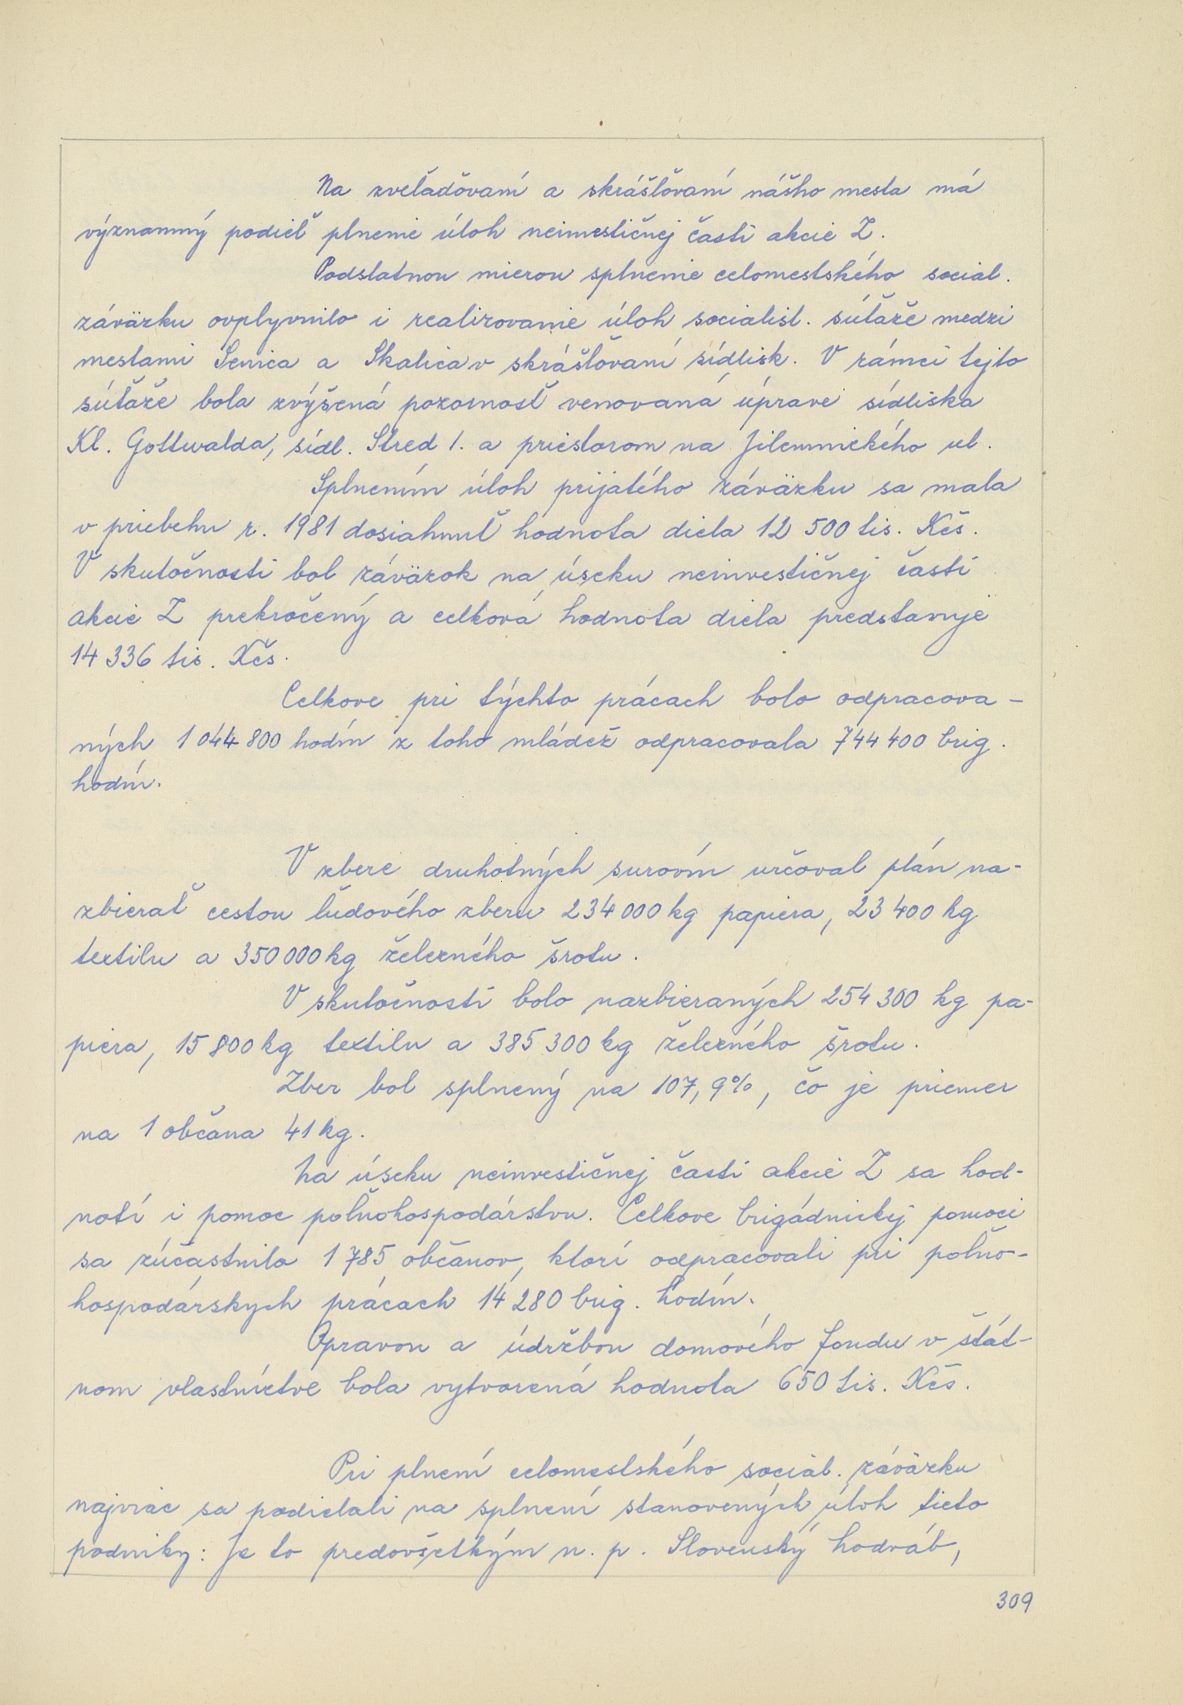 Na zveľaďovaní a skrášľovaní nášho mesta má
významný podieľ plnenie úloh neinvestičnej časti akcie Z.
Podstatnou mierou splnenie celomestského social.
záväzku ovplyvnilo i realizovanie úloh socialist. súťaže medzi
mestami Senica a Skalica v skrášľovaní sídlisk. V rámci tejto
súťaže bola zvýšená pozornosť venovaná úprave sídliska
Kl. Gottwalda, sídl. Stred 1. a priestorom na Jilemnického ul.
Splnením úloh prijatého záväzku sa mala
v priebehu r. 1981 dosiahnuť hodnota diela 12 500 tis. Kčs.
V skutočnosti bol záväzok na úseku neinvestičnej časti
akcie Z prekročený a celková hodnota diela predstavuje
14 336 tis. Kčs.
Celkove pri týchto prácach bolo odpracova-
ných 1 044 800 hodín z toho mládež odpracovala 744 400 brig.
hodín.
V zbere druhotných surovín určoval plán na-
zbierať cestou ľudového zberu 234 000 kg papiera, 23 400 kg
textilu a 350 000 kg železného šrotu.
V skutočnosti bolo nazbieraných 254 300 kg pa-
piera, 15 800 kg textilu a 385 300 kg železného šrotu.
Zber bol splnený na 107,9%, čo je priemer
na 1 občana 41 kg.
Na úseku neinvestičnej časti akcie Z sa hod-
notí i pomoc poľnohospodárstvu. Celkove brigádnickej pomoci
sa zúčastnilo 1 785 občanov, ktorí odpracovali pri poľno-
hospodárskych prácach 14 280 brig. hodín.
Opravou a údržbou domového fondu v štát-
nom vlastníctve bola vytvorená hodnota 650 tis. Kčs.
Pri plnení celomestského social. záväzku
najviac sa podielali na splnení stanovených úloh tieto
podniky: Je to predovšetkým n. p. Slovenský hodváb,
309